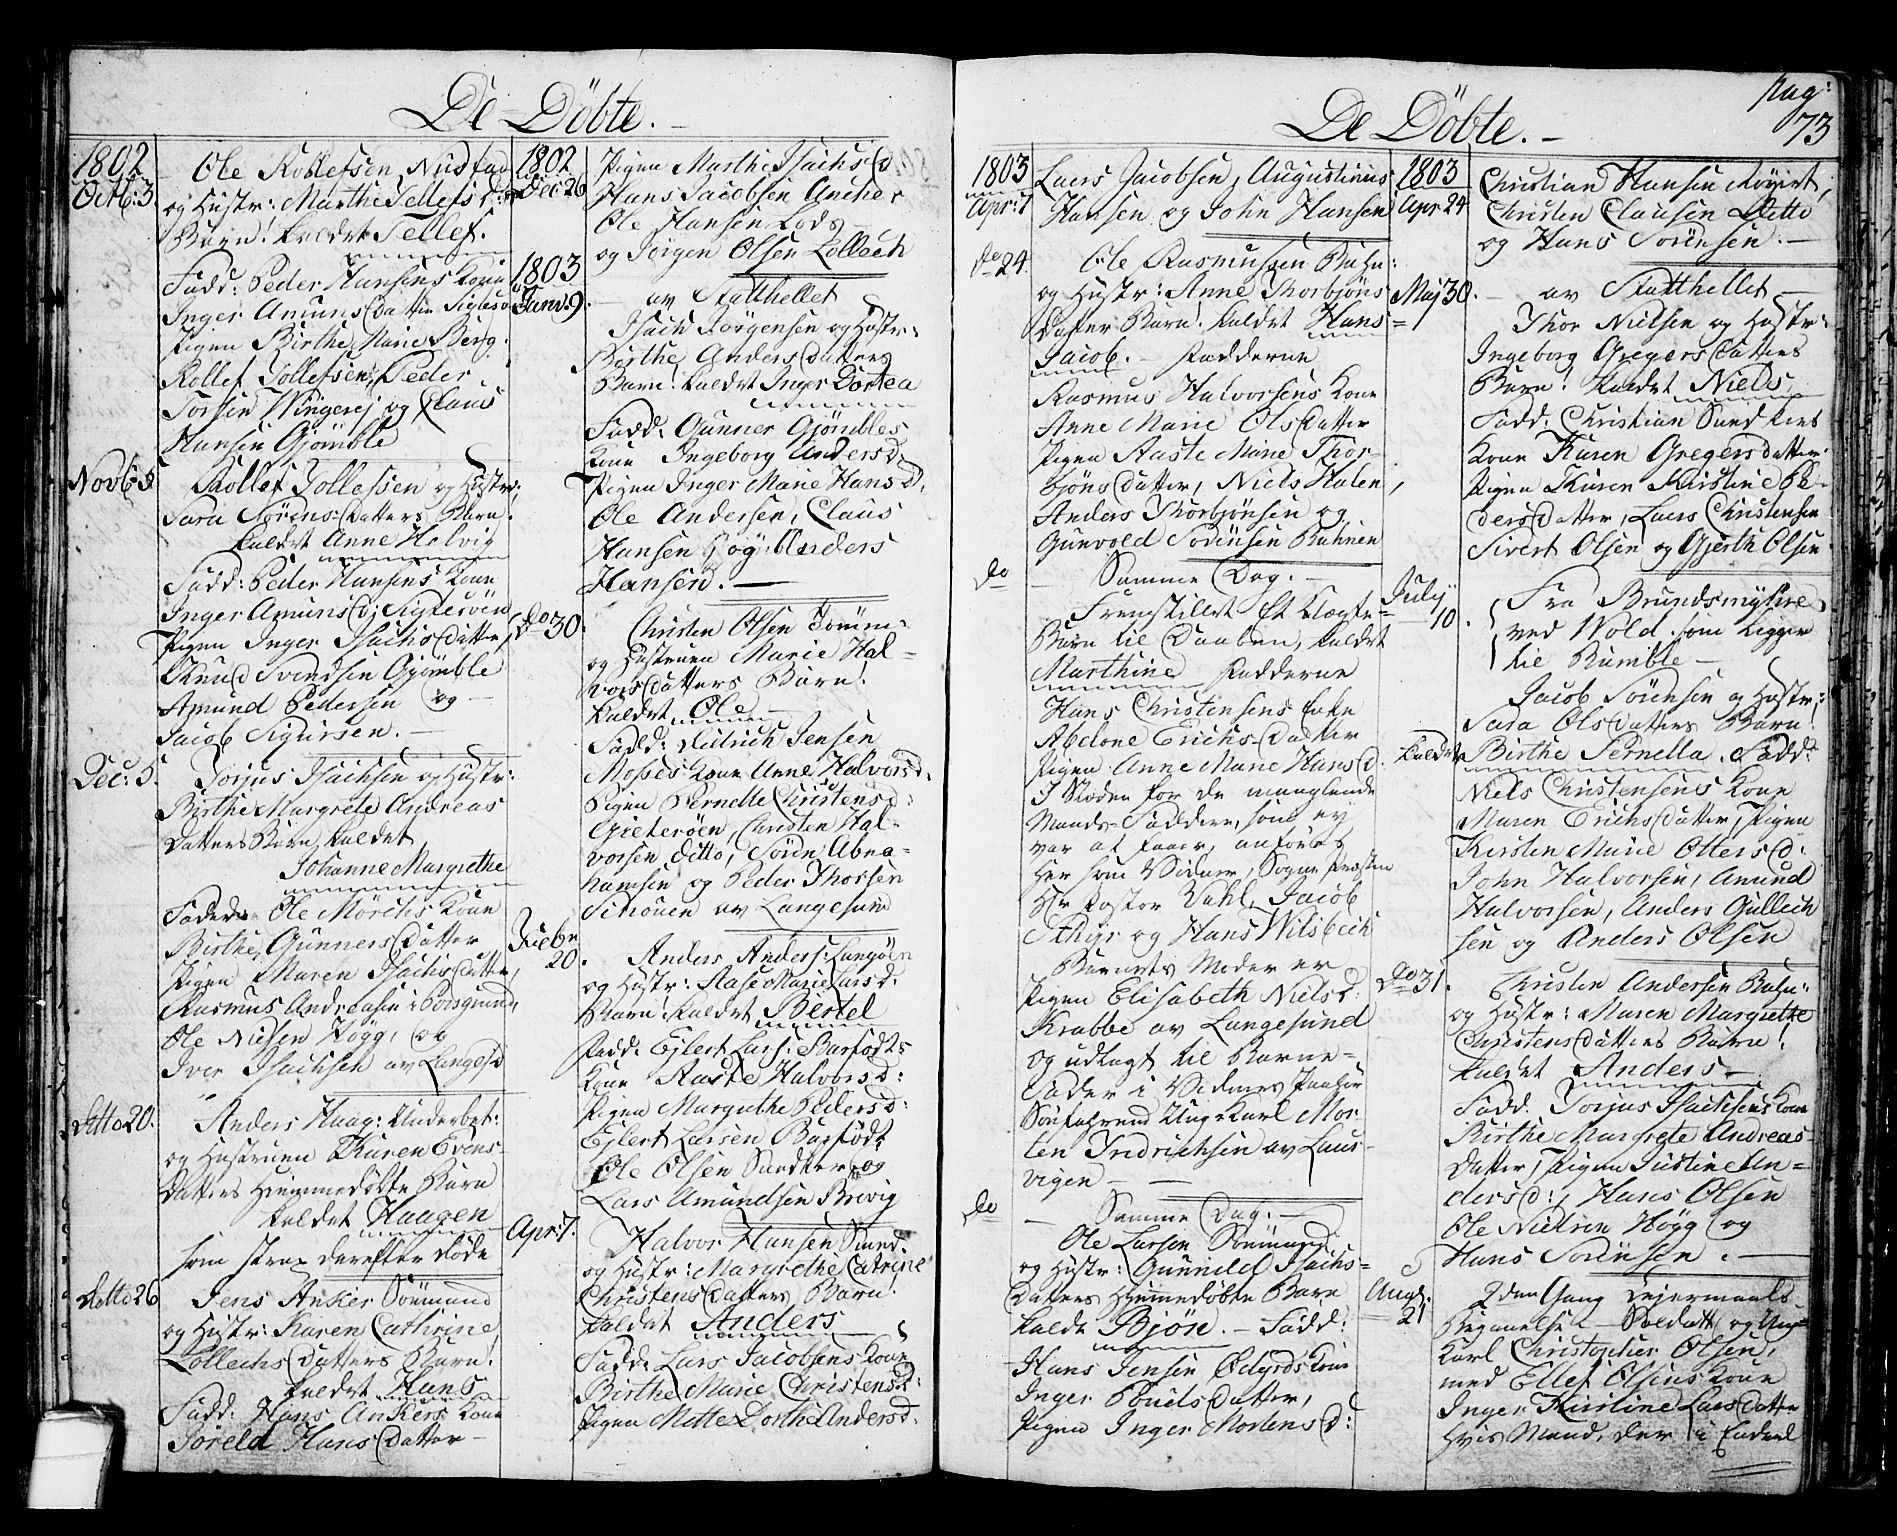 De Döbte. –
1802
Octb: 3.
Ole Rollefsen Nustad
og Hustr: Marthe Tellefsd:
Barn! kaldet Tellef.
Fadd: Peder Hansens Kone
Inger Amunsdatter
Pigen Birthe Marie Berg.
Rollef Tollefsen, Peder
Torsen Wingerej og Claus
Hansen Gjömble
Novb: 5
Rollef Tollefsen og Hustr:
Sara Sörens-Datters Barn.
kaldet Anne Helvig
Fadd: Peder Hansens Kone
Inger Amunsd:
Pigen Inger Isachsdatter,
Knud Svendsen Gjömble
Amund Pedersen og
Jacob Sigursen. –
Dec: 5.
Torjus Isachsen og Hustr:
Birthe Margrete Andreas
Datters Barn, kaldet
Johanne Margrethe
Ole Mörchs Kone
Birthe Gunnersdatter
Pigen Maren Isachsdatter,
Rasmus Andreasen i Porsgrund,
Ole Nielsen Högg, og
Iver Isachsen av Langesd
ditto 20.
Anders Haag: Underbet:
og Hustruen Karen Evens-
Datters Hiemmedöbte Barn
kaldet Haagen
som strax derefter döde
ditto 26
Jens Anker Sömand
og Hustr: Karen Cathrine
Lollechs Datters Barn!
kaldet Hans
Fadd: Hans Ankers Kone
Söreld Hans Datter –
1802
Dec 26
Pigen Marthe Isachsd
Hans Jacobsen Ancher
Ole Hansen Lods
og Jörgen Olsen Lollech
1803
Janv: 9.
– av Statthellet
Isach Jörgensen og Hustr:
Birthe Andersdatters
Barn! kaldet Inger Dortea
Fadd: Gunner Gjömbles
Kone Ingeborg Andersd:
Pigen Inger Marie Hansd,
Ole Andersen, Claus
Hansen Anders
Hansen. –
Do 30.
Christen Olsen Tömm-
og Hustruen Marie Hal-
vorsdatters Barn.
kaldet Ole
Fadd: Didrich Jensen
Mosses Kone Anne Halvorsd:
Pigen Pernelle Christensd:
Gieteröen, Christen Hal-
vorsen ditto, Sören Abra-
hamsen og Peder Thorsen
av Langesund
Febr
20.
Anders Anders: Langöen
og Hustr: Aase Marie Larsd:
Barn! kaldet Bertel
Fadd: Ejlert Lars: Barfödts
Kone Aaste Halvorsd:
Pigen Margrethe Pedersd:
Ejlert Larsen Barfödt
Ole Olsen og
Lars Amundsen Brevig
Apr: 7.
Halvor Hansen
og Hustr: Margrethe Catrine
Christensdatters Barn.
kaldet Anders
Fadd: Lars Jacobsens Kone
Birthe Marie Christensd:
Pigen Mette Dorthe Andersd:
De Döbte. –
pag:
73
1803
Apr: 7
Laers Jacobsen, Augustinus
Hansen og John Hansen
Do 24.
Ole Rasmusen
og Hustr: Anne Thorbjöns
Datter Barn! kaldet Hans
Jacob. – Fadderne
Rasmus Halvorsens Kone
Anne Marie Olsdatter
Pigen Aaste Marie Thor-
bjönsdatter, Niels Halen,
Anders Thorbjönsen og
Gunvold Sörensen
Do
– Samme Dag. –
Fremstillet Et
Barn til Daaben, kaldet
Marthine Fadderne
Hans Christensens Enke
Abelone Erichs-Datter
Pigen Anne Marie Hansd:
I Stæden for de manglende
Mands-Faddere, som ey
var at faae, anföres
her som Vidner, Sogne Presten
Hr Pastor Dahl, Jacob
og Hans
Barnets Moder er
Pigen Elisabeth Nielsd:
Krabbe av Langesund
og udlagt til Barne-
Fader i Vidners Paahör
Söefahrend Ung Karl Mor-
ten Indrichsen av Laur-
vigen –
Do
– Samme Dag: –
Ole Larsen Sömand
og Hustr: Gunnild Isachs-
Datters Hjemmedöbte Barn
kaldt Bjön. – Fadd:
Hans Jensen Kone
Inger Povelsdatter,
Pigen Inger Mortensd:
1803
Apr 24
Christian Hansen
Christen Clausen Ditto
og Hans Sörensen. –
Maj 30.
– av Statthellet –
Thor Nielsen og Hustr:
Ingeborg Gregersdatters
Barn! kaldet Niels
Fadd: Christian
Kone Karen Gregersdatter
Pigen Karen Kirstine Pe-
dersdatter, Laers Christensen
Sivert Olsen og Gjerth Olsen
July
10.
Fra Brunds
ved Wold. som ligger
til Bamble –
Jacob Sörensen og Hustr:
Sara Olsdatters Barn!
kaldet Birthe Pernella. Fadd:
Niels Christensens Kone
Maren Erichsdatter, Pigen
Kirsten Marie Ottersd:
John Halvorsen, Amund
Halvorsen, Anders Gullech
sen og Anders Olsen
Do 31.
Christen Andersen
og Hustr: Maren Margrethe
Christensdatters Barn!
kaldet Anders –
Fadd. Torjus Isachsens Kone
Birthe Margrete Andreas-
datter, Pigen Justine An-
dersd:, Hans Olsen
Ole Nielsen Högg og
Hans Sörensen. –
Augs.
21
2den Gang Lejermaals
Begaaelse – Soldatt og Ung
Karl Christopher Olsen,
med Ellef Olsens Kone
Inger Kirstine Larsdatter
hvis Mand, der i